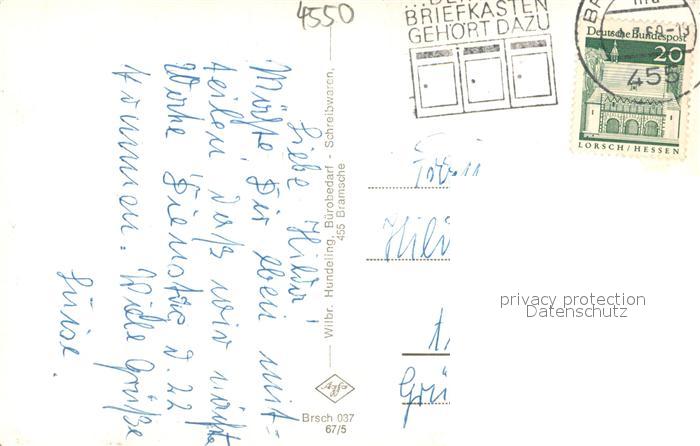 4550
...DER
BRIEFKASTEN
GEHÖRT DAZU
Deutsche Bundespost
20
455
LORSCH/HESSEN
Liebe Hilde!
Möchte Dir eben mit-
teilen, daß wir nächste
Woche Dienstag d. 22
kommen. Viele Grüße
Luise.
Wilbr. Hundeling, Bürobedarf - Schreibwaren,
455 Bramsche
Agfa
Brsch 037
67/5
Hil
Grü
privacy protection
Datenschutz